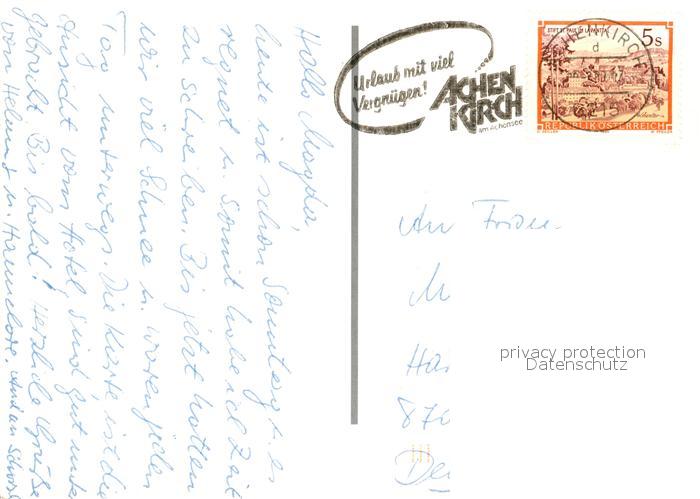 Hallo Magda,
heute ist schon Sonntag u. es
regnet u. somit habe ich Zeit
zu schreiben. Bis jetzt hatten
wir viel Schnee u. waren jeden
Tag unterwegs. Die Karte ist die
Ansicht vom Hotel, sind gut unter
gebracht. Bis bald! Herzliche Grüße
von Helmut u. Hannelore.
Urlaub mit viel
Vergnügen!
ACHEN
KIRCH
am Achensee
STIFT ST. PAUL IM LAVANTTAL
5s
ACHENKIRCH
d
6215
REPUBLIK ÖSTERREICH
An
privacy protection
Datenschutz